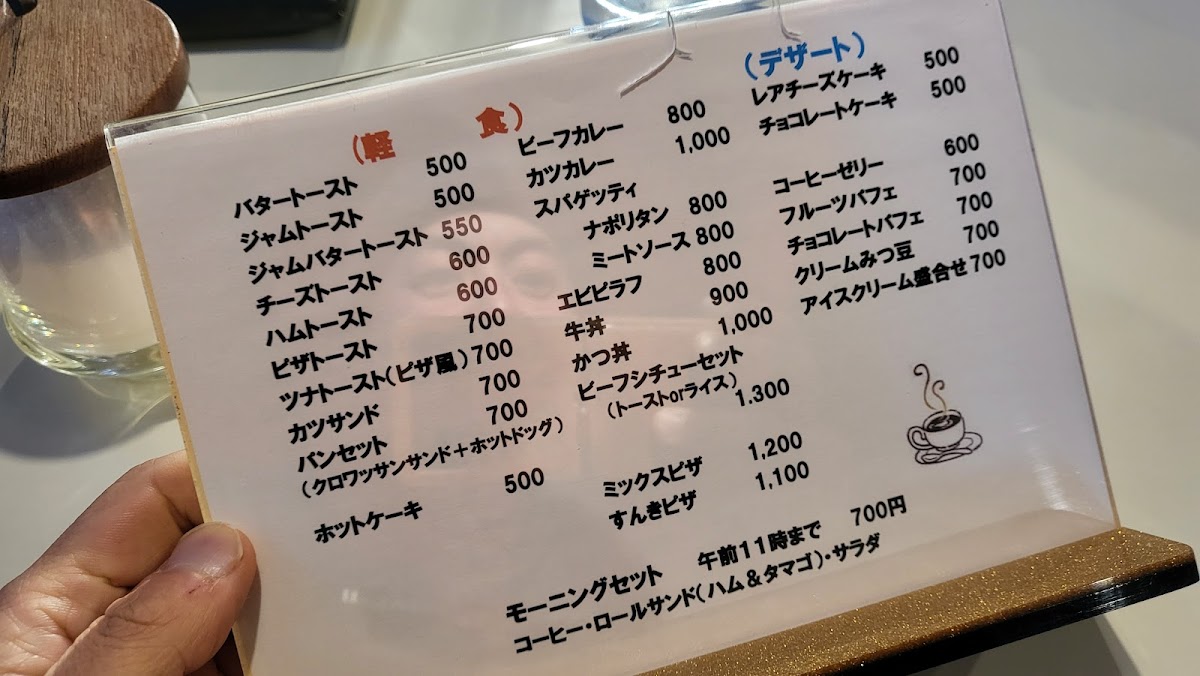 (軽 食)
バタートースト 500
ジャムトースト 500
ジャムバタートースト 550
チーズトースト 600
ハムトースト 600
ピザトースト 700
ツナトースト(ピザ風) 700
カツサンド 700
パンセット 700
(クロワッサンサンド+ホットドッグ)
ホットケーキ 500
ビーフカレー 800
カツカレー 1,000
スパゲッティ
ナポリタン 800
ミートソース 800
エビピラフ 800
牛丼 900
かつ丼 1,000
ビーフシチューセット
(トーストorライス) 1.300
ミックスピザ 1,200
すんきピザ 1,100
(デザート)
レアチーズケーキ 500
チョコレートケーキ 500
コーヒーゼリー 600
フルーツパフェ 700
チョコレートパフェ 700
クリームみつ豆 700
アイスクリーム盛合せ 700
モーニングセット 午前11時まで 700円
コーヒー・ロールサンド(ハム&タマゴ)・サラダ